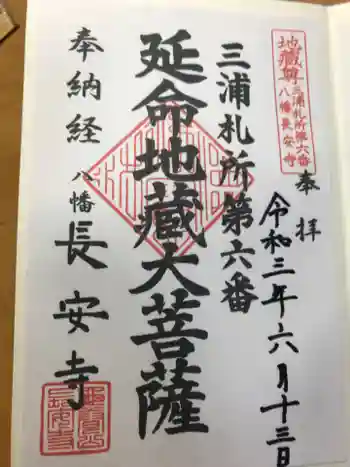 地蔵尊
三浦札所第六番
八幡長安寺
奉拝
令和三年六月十三日
三浦札所第六番
延命地蔵大菩薩
奉納経
八幡
長安寺